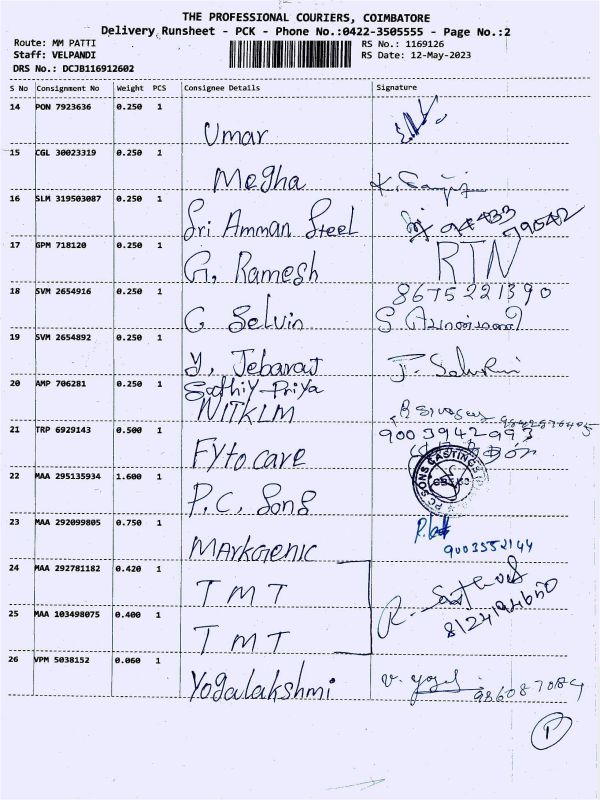 THE PROFESSIONAL COURIERS, COIMBATORE
Delivery Runsheet - PCK - Phone No.:0422-3505555 - Page No.:2
Route: MM PATTI
RS No.: 1169126
Staff: VELPANDI
RS Date: 12-May-2023
DRS No.: DCJB116912602
S No Consignment No Weight PCS Consignee Details Signature
14 PON 7923636 0.250 1
Umar
15 CGL 30023319 0.250 1
Megha K.
16 SLM 319503087 0.250 1
Sri Amman Steel 94433 79542
17 GPM 718120 0.250 1
G. Ramesh RTN
8675221390
18 SVM 2654916 0.250 1
G Selvin
19 SVM 2654892 0.250 1
Y. Jebaraj
20 AMP 706281 0.250 1
Sathiy Priya
NITKLM
21 TRP 6929143 0.500 1
9003942993
Fyto care
22 MAA 295135934 1.600 1
PC SONS CASTINGS
P.C. Sons
23 MAA 292099805 0.750 1
Markgenic 9003552144
24 MAA 292781182 0.420 1
TMT
25 MAA 103498075 0.400 1
8124194650
TMT
26 VPM 5038152 0.060 1
Yogalakshmi V. 
P